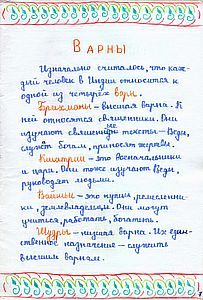 Варны
Изначально считалось, что каж-
дый человек в Индии относится к
одной из четырёх варн.
Брахманы – высшая варна. К
ней относятся священники. Они
изучают священные тексты – Веды,
служат богам, приносят жертвы.
Кшатрии – это военачальники
и цари. Они тоже изучают Веды,
руководят людьми.
Вайшьи – это купцы, ремесленни-
ки, земледельцы. Они могут
учиться, работать, богатеть.
Шудры – низшая варна. Их един-
ственное назначение – служить
высшим варнам.